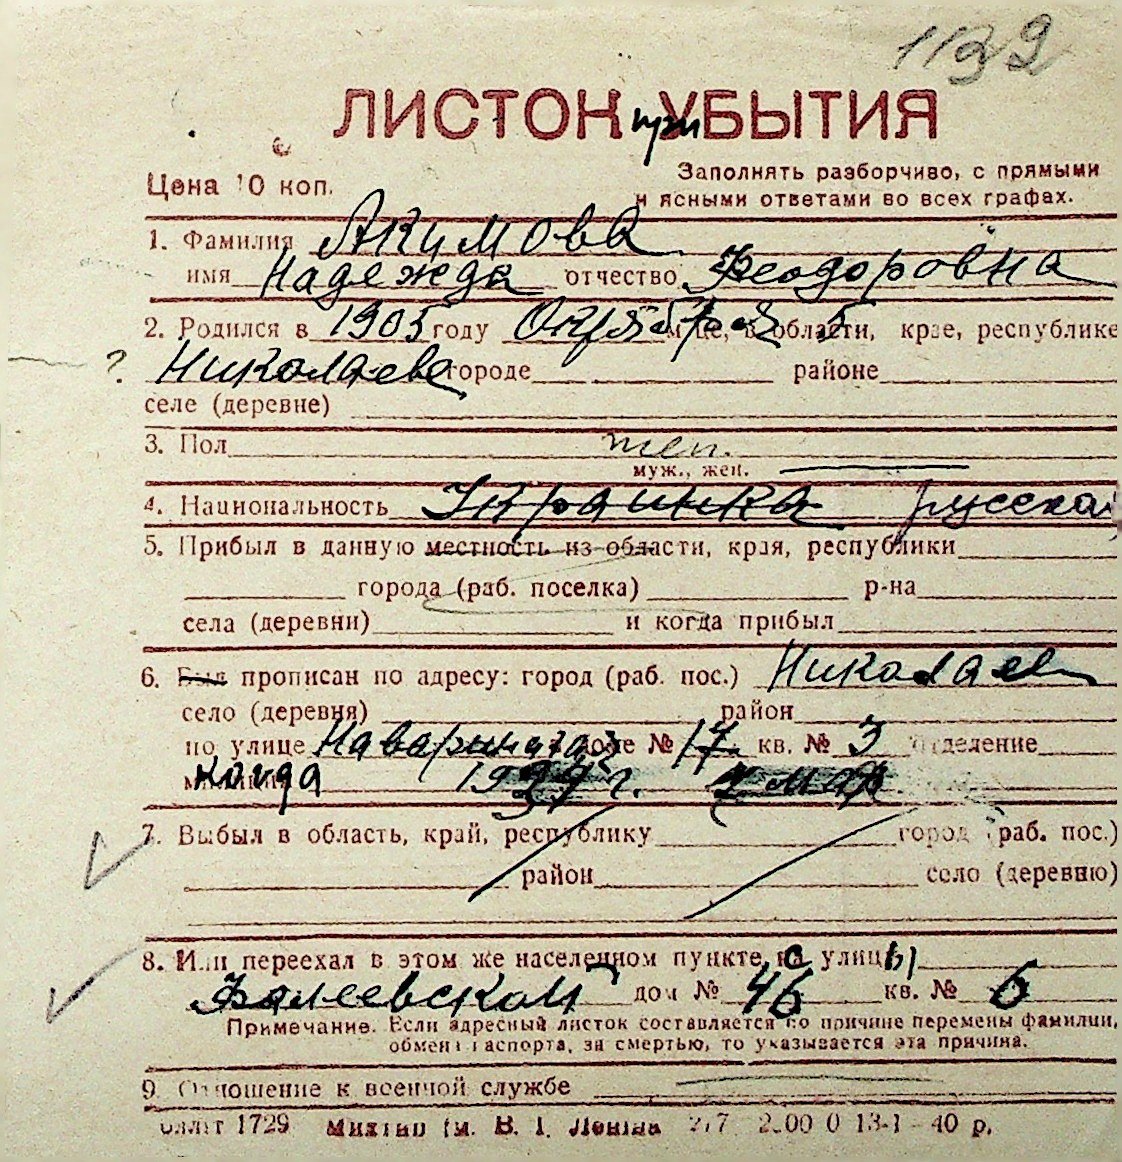 1139
ЛИСТОК при УБЫТИЯ
Цена 10 коп.
Заполнять разборчиво, с прямыми
и ясными ответами во всех графах.
1. Фамилия Акимова
имя Надежда отчество Феодоровна
2. Родился в 1905 году Октября м-це, в области, крае, республике
? Николаеве городе районе
селе (деревне)
3. Пол жен.
муж., жен.
4. Национальность Украинка русская
5. Прибыл в данную местность из области, края, республики
города (раб. поселка) р-на
села (деревни) и когда прибыл
6. Был прописан по адресу: город (раб. пос.) Николаев
село (деревня) район
по улице доме № 17 кв. № 3 отделение
когда
7. Выбыл в область, край, республику город (раб. пос.)
район село (деревню)
8. Или переехал в этом же населенном пункте, с улицы
Фалеевской дом № 46 кв. № 6
Примечание. Если адресный листок составляется по причине перемены фамилии,
обмена паспорта, за смертью, то указывается эта причина.
9. Отношение к военной службе
1729 В. І. Леніна 13-І - 40 р.